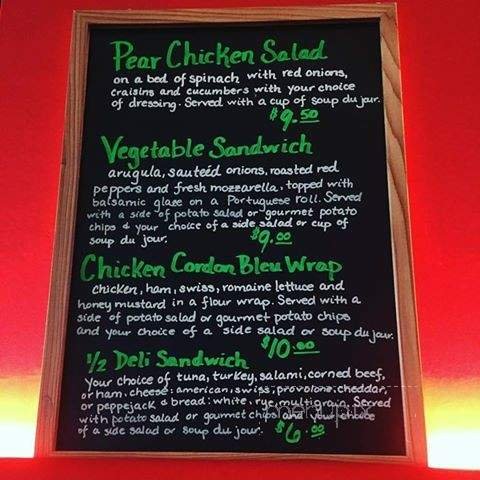 Pear Chicken Salad
on a bed of spinach with red onions,
craisins and cucumbers with your choice
of dressing. Served with a cup of soup du jour.
$9.50
Vegetable Sandwich
arugula, sautéed onions, roasted red
peppers and fresh mozzarella, topped with
balsamic glaze on a Portuguese roll. Served
with a side of potato salad or gourmet potato
chips & your choice of a side salad or cup of
soup du jour.
$9.00
Chicken Cordon Bleu Wrap
chicken, ham, swiss, romaine lettuce and
honey mustard in a flour wrap. Served with a
side of potato salad or gourmet potato chips
and your choice of a side salad or soup du jour.
$10.00
1/2 Deli Sandwich
Your choice of tuna, turkey, salami, corned beef,
or ham. cheese: american, swiss, provolone, cheddar,
or pepperjack & bread: white, rye, multigrain. Served
with potato salad or gourmet chips and your choice
of a side salad or soup du jour.
$6.00
menupix